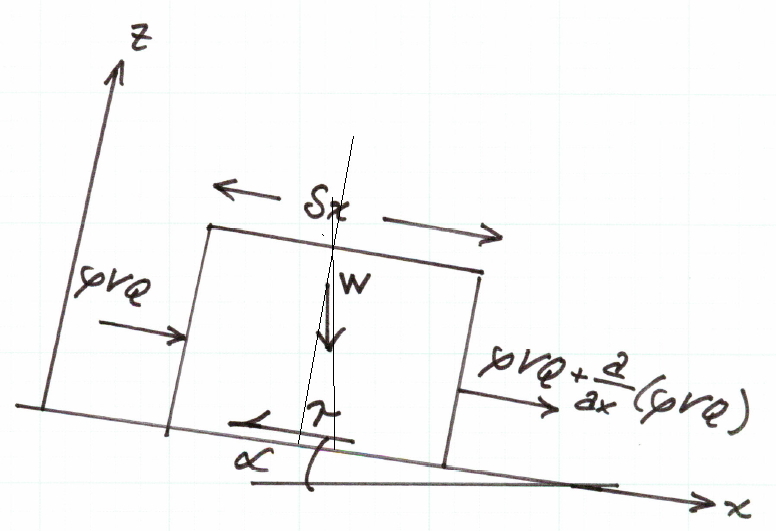 z
δx
ρVQ
W
ρVQ + ∂/∂x (ρVQ)
τ
α
x